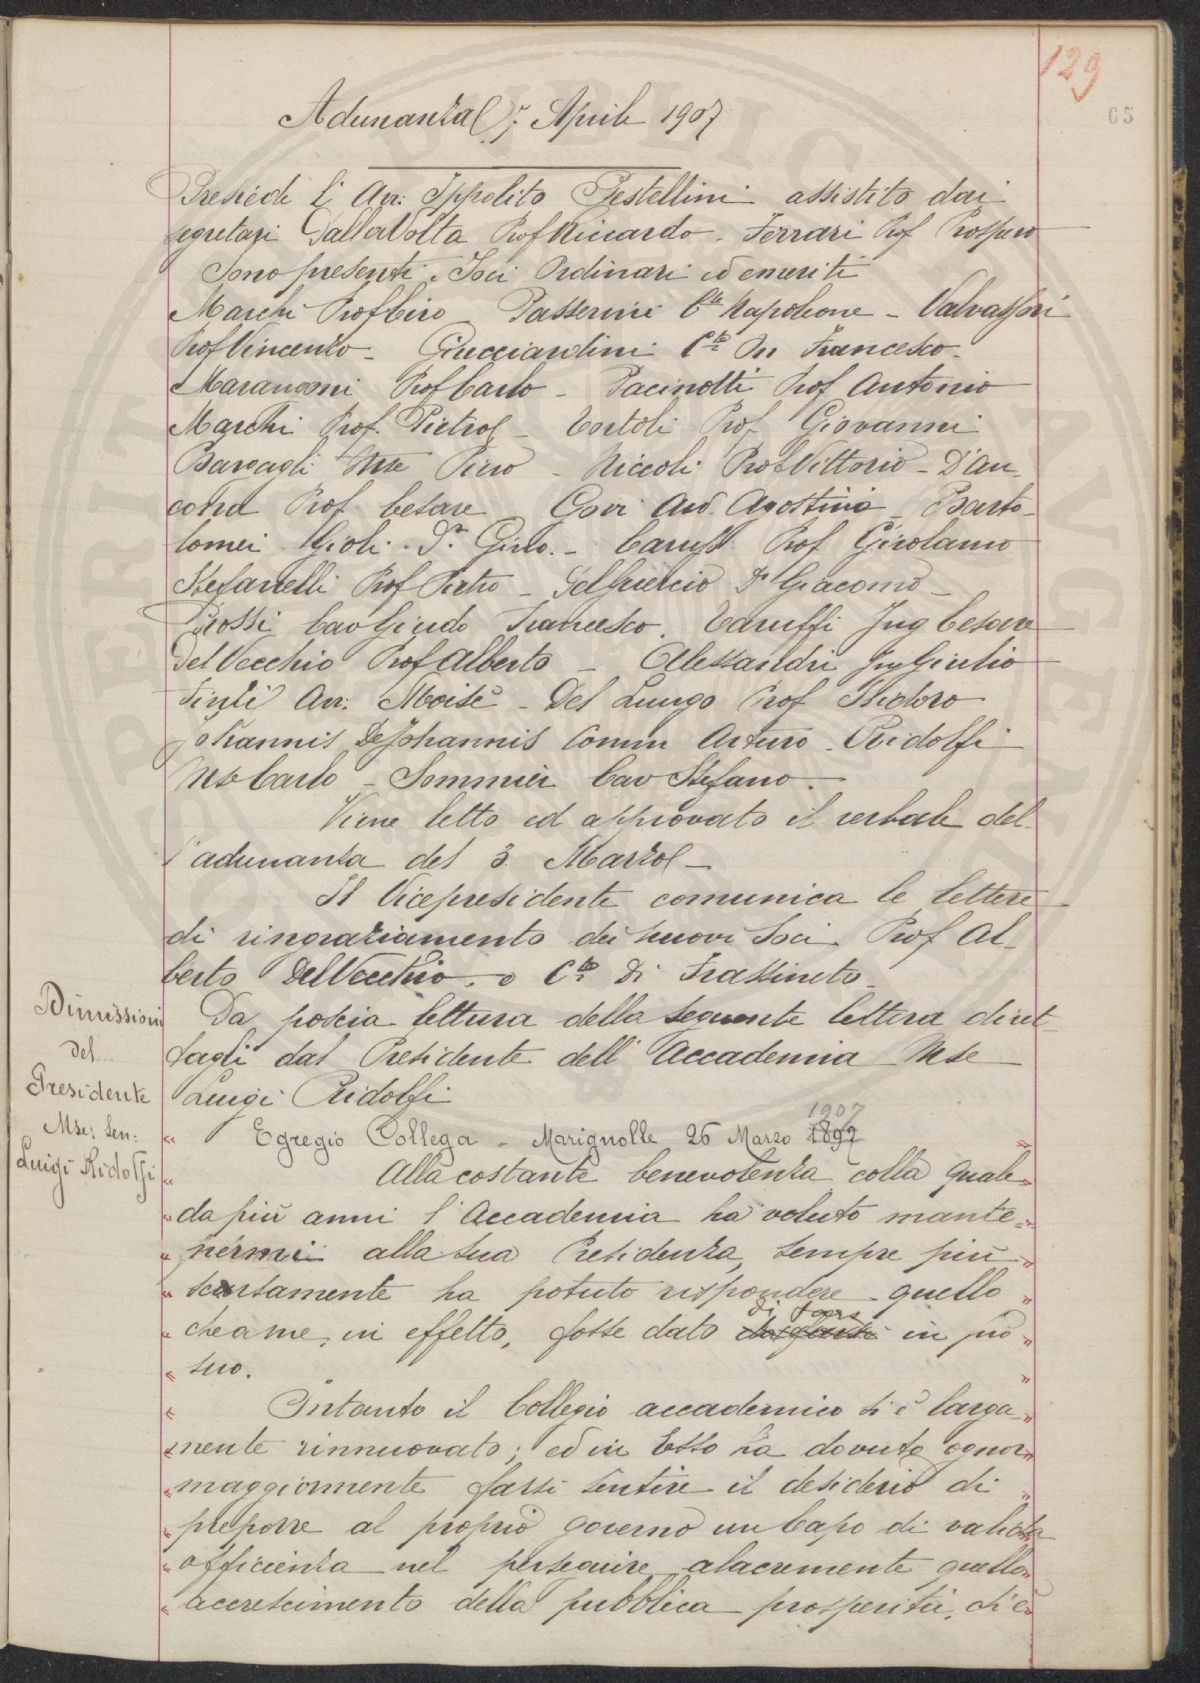 129
65
Adunanza 7 Aprile 1907
Presiede l'Avv: Ippolito Pestellini assistito dai
segretari Dalla Volta Prof Riccardo - Ferrari Prof Prospero
Sono presenti i Soci Ordinari ed emeriti
Marchi Prof Ciro - Passerini Cte Napoleone - Valvassori
Prof Vincenzo - Guicciardini Cte Fr Francesco -
Marangoni Prof Carlo - Pacinotti Prof Antonio
Marchi Prof. Pietro - Tortoli Prof Giovanni
Bargagli Mse Piero - Niccoli Prof Vittorio - D'An-
cona Prof Cesare - Govi Avv. Agostino - Barto-
lomei Gioli - Dr Gino. - Caruso Prof Girolamo
Stefanelli Prof Pietro - Del Guercio Dr Giacomo -
Rossi Cav Guido Francesco. Taruffi Ing Cesare
Del Vecchio Prof Alberto - Alessandri Ing Giulio
Finzi Avv: Moisè - Del Lungo Prof Isidoro
Johannis De Johannis Comm Arturo - Ridolfi
Mse Carlo - Sommier Cav Stefano.
Viene letto ed approvato il verbale del-
l'adunanza del 3 Marzo -
Il Vicepresidente comunica le lettere
di ringraziamento dei nuovi Soci Prof Al-
berto Del Vecchio - e Cte Di Frassineto -
Dimissioni
del
Presidente
Mse: Sen:
Luigi Ridolfi
Da poscia lettura della seguente lettera diret-
tagli dal Presidente dell'Accademia Mse
Luigi Ridolfi
1907
" Egregio Collega - Marignolle 26 Marzo 1897 "
" Alla costante benevolenza colla quale "
" da più anni l'Accademia ha voluto mante= "
" nermi alla sua Presidenza, sempre più "
" scarsamente ha potuto rispondere quello "
di fare
" che a me, in effetto, fosse dato in prò "
" suo. "
" Intanto il Collegio accademico si è larga- "
" mente rinnuovato; ed in Esso ha dovuto ognor "
" maggiormente farsi sentire il desiderio di "
" preporre al proprio governo un Capo di valida "
" officienza nel perseguire alacremente quello "
" accrescimento della pubblica prosperità, di è "